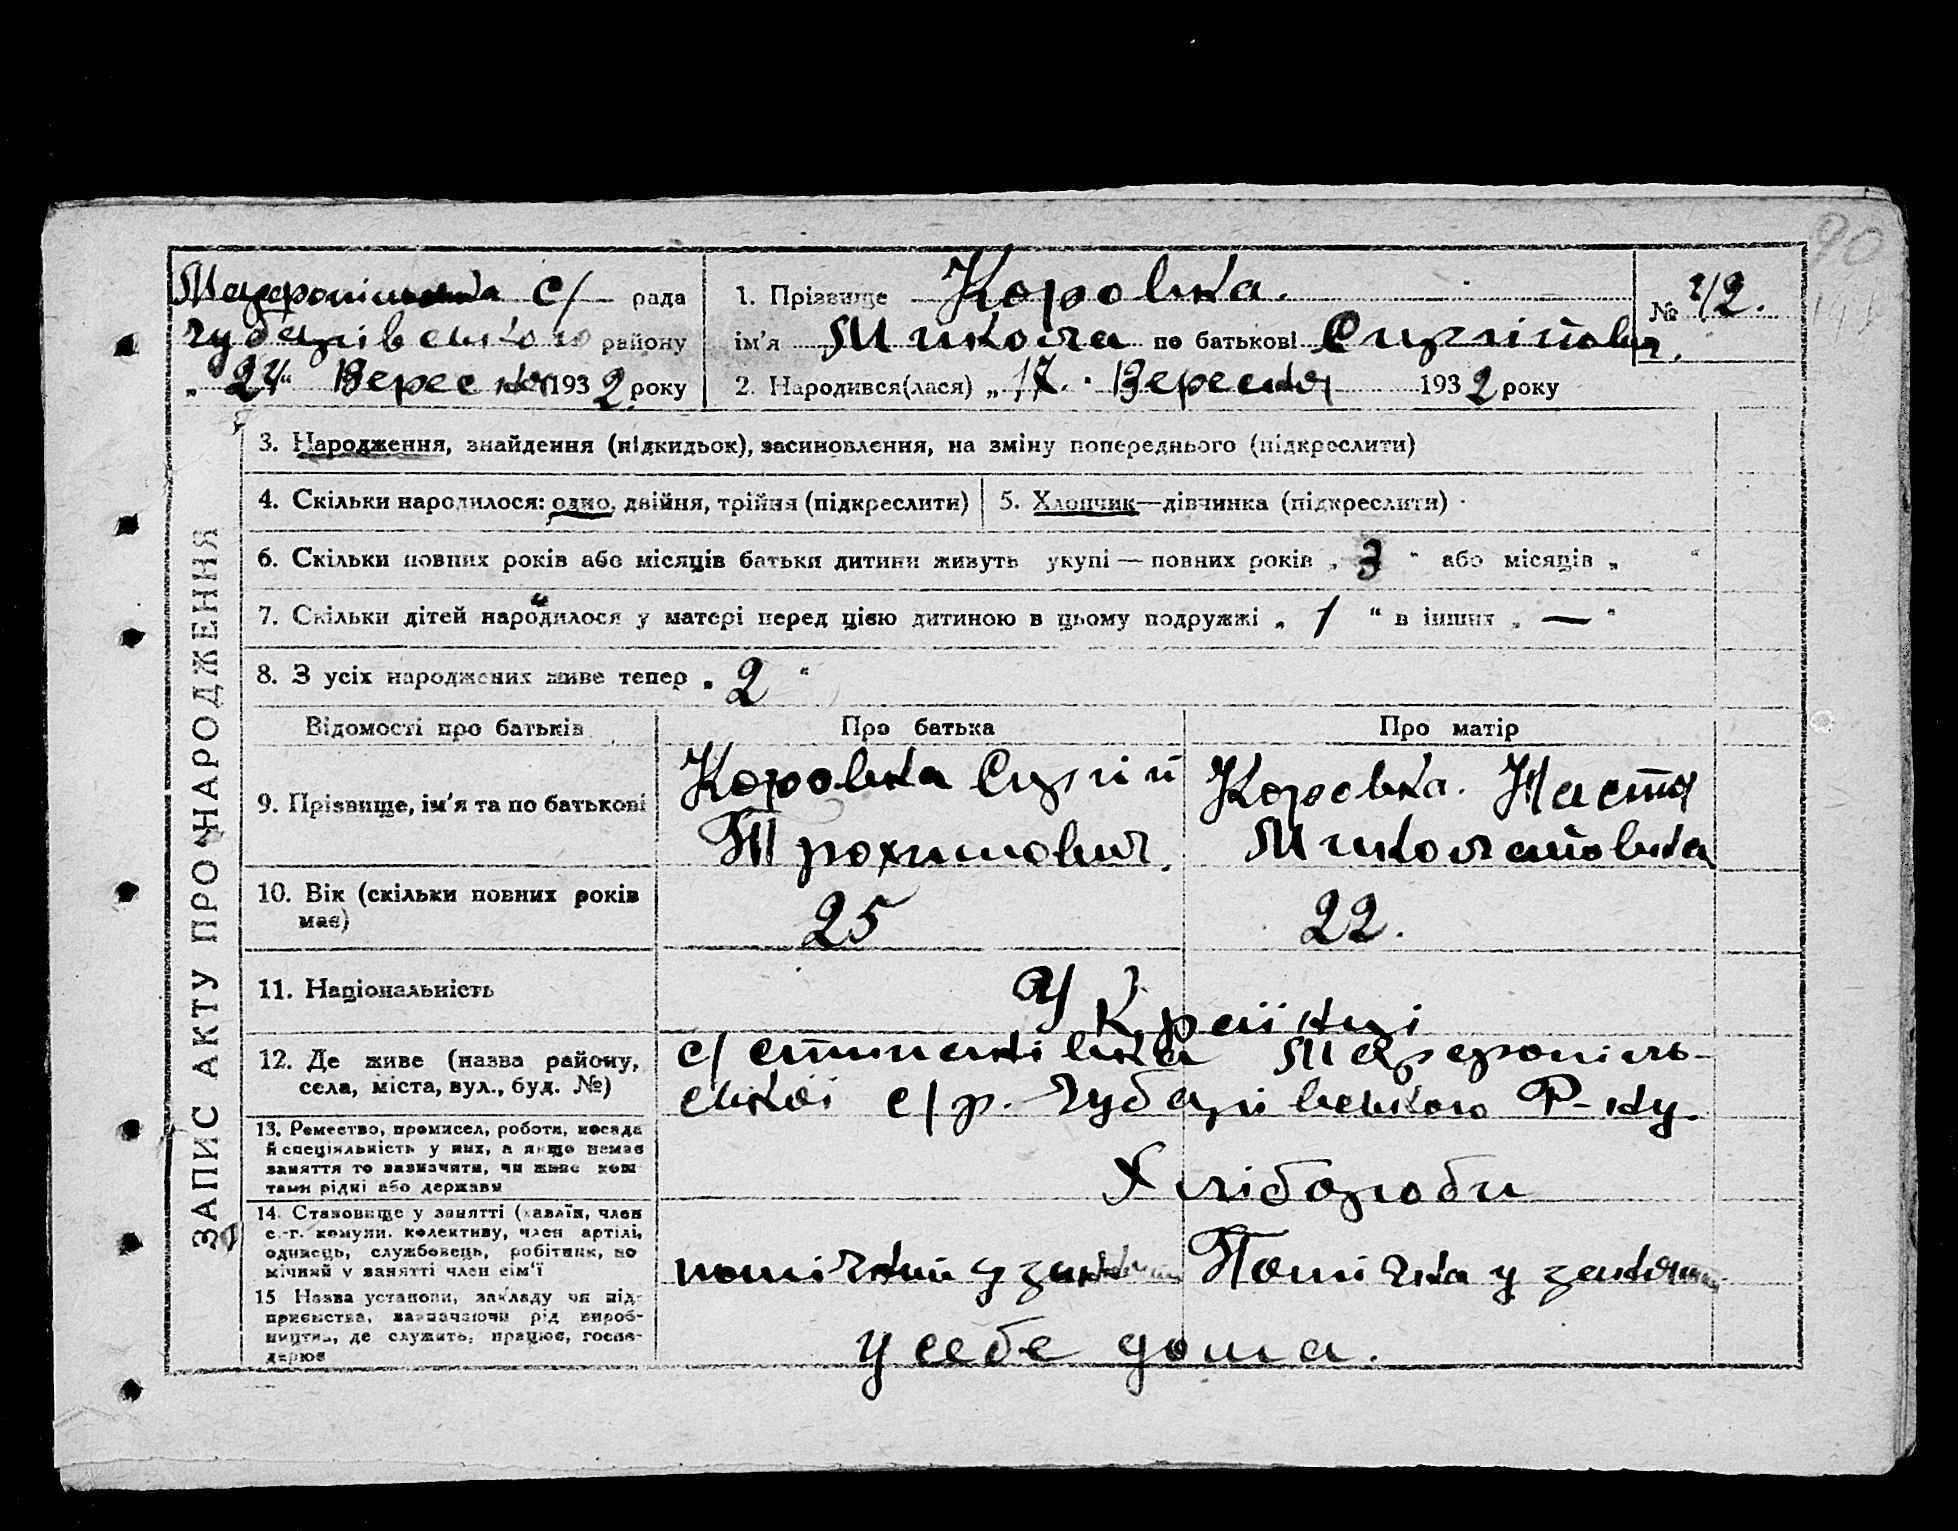 90
с/ рада
Чубарівського району
„ 24 “ Вересня 1932 року
1. Прізвище Коровка.
ім'я Микола по батькові Сиргійович.
№ 42.
2. Народився(лася) „ 17. Вересня 1932 року
ЗАПИС АКТУ ПРО НАРОДЖЕННЯ
3. Народження, знайдення (підкидьок), засиновлення, на зміну попереднього (підкреслити)
4. Скільки народилося: одно, двійня, трійня (підкреслити)
5. Хлопчик—дівчинка (підкреслити)
6. Скільки повних років або місяців батьки дитини живуть укупі — повних років „ 3 “ або місяців „ “
7. Скільки дітей народилося у матері перед цією дитиною в цьому подружжі „ 1 “ в інших „ — “
8. З усіх народжених живе тепер „ 2 “
Відомості про батьків Про батька Про матір
9. Прізвище, ім'я та по батькові
Коровка Сиргій
Трохимович.
Коровка. Настя
Миколаївна
10. Вік (скільки повних років
має)
25
22.
11. Національність
Українці
12. Де живе (назва району,
села, міста, вул., буд. №)
с/
ської с/р. Чубарівського Р-ну.
13. Ремество, промисел, робота, посада
й спеціяльність у них, а якщо немає
заняття то зазначити, чи живе кош
тами рідні або держави
Хлібороби
14. Становище у занятті (хазяїн, член
с.-г. комуни, колективу, член артілі,
одинець, службовець, робітник, по
мічний у занятті член сім'ї
помічний у
Помічна у занятті
15 Назва установи, закладу чи під-
приємства, зазначаючи рід вироб-
ництва, де служить, працює, госпо-
дарює
у себе дома.